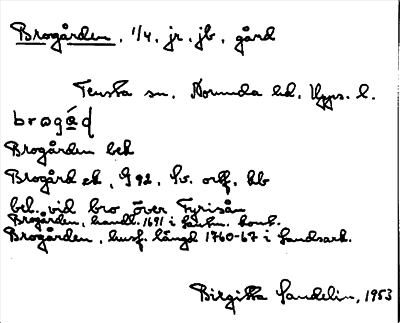 Brogården, 1/4, jr, jb, gård
Tensta sn, Norunda hd, Upps. l.
brogá̱d
Brogården bek
Brogård ek, G 92, Sv. ortf. kb
bel. vid bro över Fyrisån
Brogården, handl. 1691 i Lantm. kont.
Brogården, husf. längd 1760-67 i Landsark.
Birgitta Sandelin, 1953